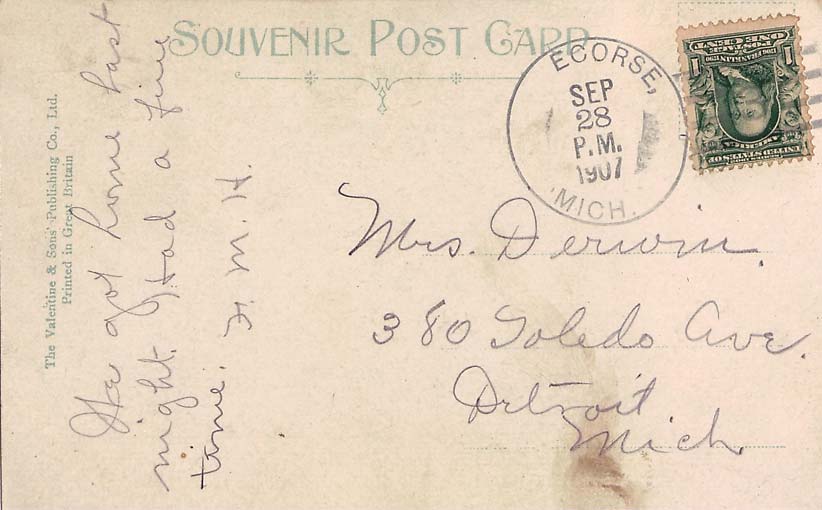 SOUVENIR POST CARD
The Valentine & Sons' Publishing Co., Ltd.
Printed in Great Britain
We got home last
night. Had a fine
time. H. M. H.
ECORSE,
SEP
28
P.M.
1907
MICH.
ONE CENT
POSTAGE
1 1
UNITED STATES OF
AMERICA
Mrs. Derwin.
380 Toledo Ave.
Detroit
Mich